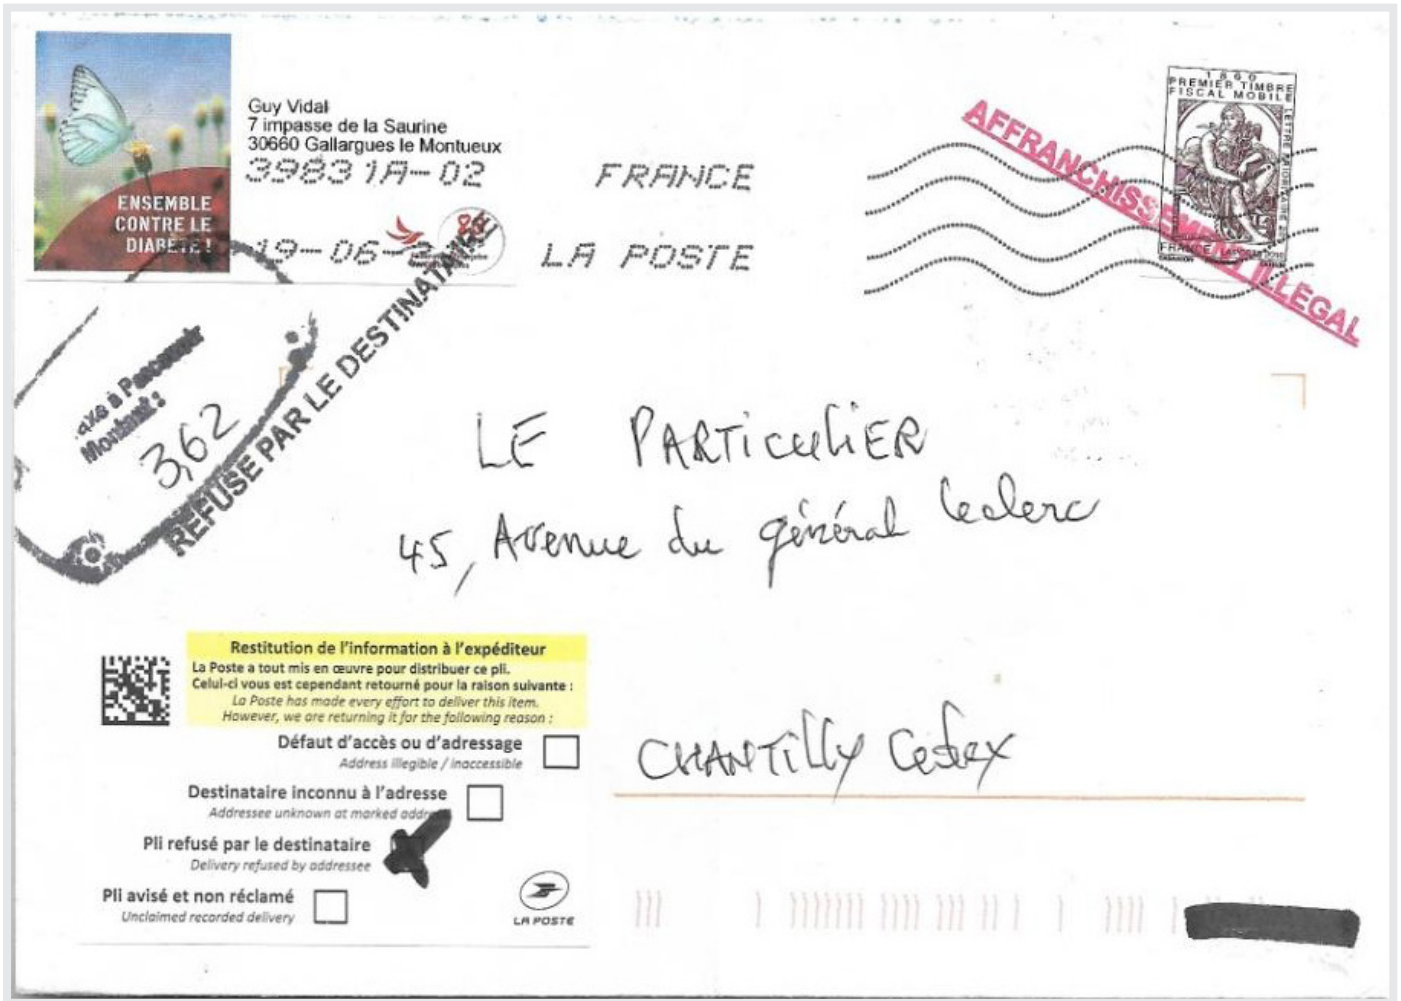 Guy Vidal
7 impasse de la Saurine
30660 Gallargues le Montueux
39831A-02
19-06-
FRANCE
LA POSTE
ENSEMBLE
CONTRE LE
DIABÈTE !
1860
PREMIER TIMBRE
FISCAL MOBILE
LETTRE PRIORITAIRE
FRANCE
AFFRANCHISSEMENT ILLÉGAL
axe à Percevoir
Montant :
3,62
REFUSE PAR LE DESTINATAIRE
LE PARTICULIER
45, Avenue du général Leclerc
CHANTILLY Cedex
Restitution de l'information à l'expéditeur
La Poste a tout mis en œuvre pour distribuer ce pli.
Celui-ci vous est cependant retourné pour la raison suivante :
La Poste has made every effort to deliver this item.
However, we are returning it for the following reason :
Défaut d'accès ou d'adressage
Address illegible / inaccessible
Destinataire inconnu à l'adresse
Addressee unknown at marked address
Pli refusé par le destinataire
Delivery refused by addressee
Pli avisé et non réclamé
Unclaimed recorded delivery
LA POSTE